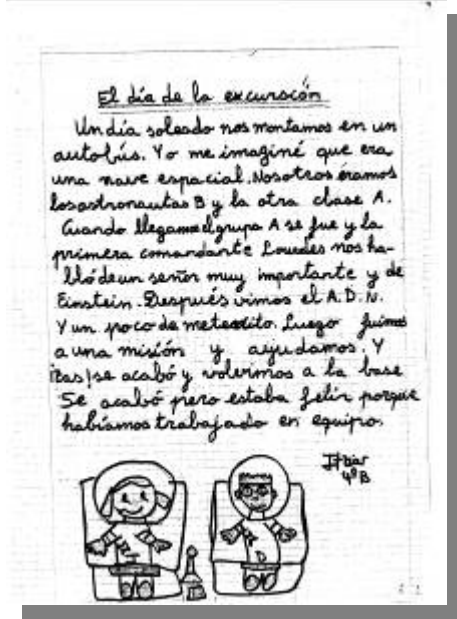 El día de la excursión
Un día soleado nos montamos en un
autobús. Yo me imaginé que era
una nave espacial. Nosotros éramos
los astronautas B y la otra clase A.
Cuando llegamos el grupo A se fue y la
primera comandante Lourdes nos ha-
bló de un señor muy importante y de
Einstein. Después vimos el A.D.N.
Y un poco de meteorito. Luego fuimos
a una misión y ayudamos. Y
¡zas! se acabó y volvimos a la base
Se acabó pero estaba feliz porque
habíamos trabajado en equipo.
4º B